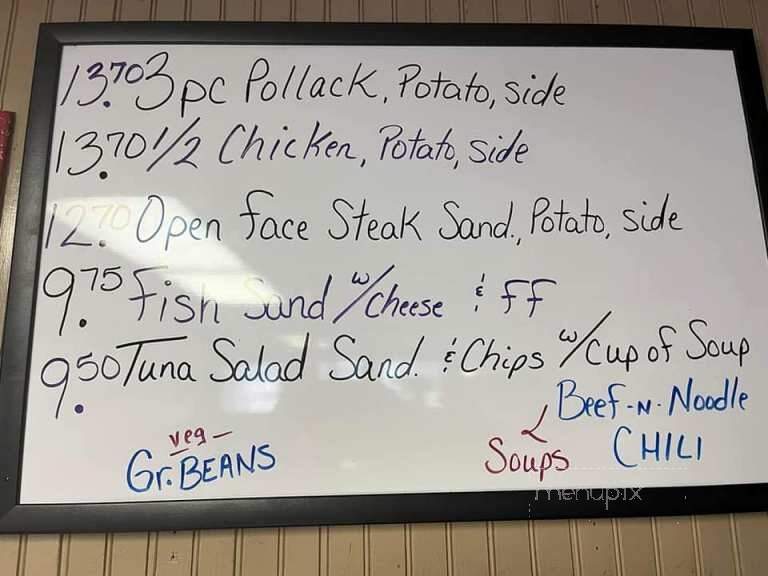 13.70 3pc Pollack, Potato, side
13.70 1/2 Chicken, Potato, side
12.70 Open face Steak Sand., Potato, side
9.75 Fish Sand w/cheese & ff
9.50 Tuna Salad Sand. & Chips w/Cup of Soup
veg -
Gr. BEANS
Soups
Beef-N-Noodle
CHILI
menupix